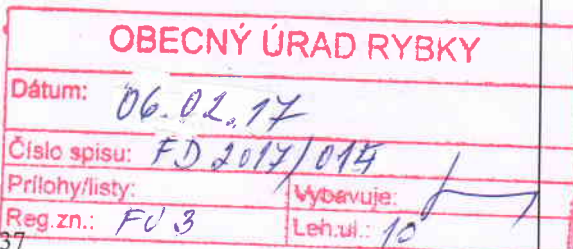 OBECNÝ ÚRAD RYBKY
Dátum: 06.02.17
Číslo spisu: FD 2017/014
Prílohy/listy: Vybavuje:
Reg.zn.: FU 3 Leh.ul.: 10
37